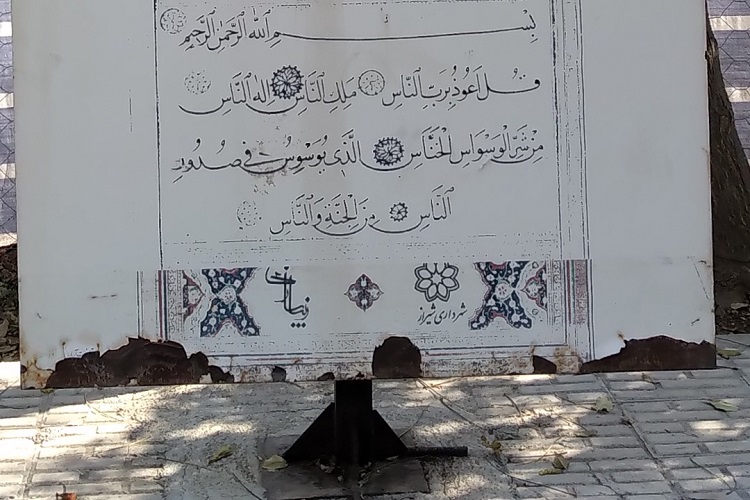 بِسْمِ ٱللَّهِ ٱلرَّحْمَٰنِ ٱلرَّحِيمِ
قُلْ أَعُوذُ بِرَبِّ ٱلنَّاسِ مَلِكِ ٱلنَّاسِ إِلَٰهِ ٱلنَّاسِ
مِنْ شَرِّ ٱلْوَسْوَاسِ ٱلْخَنَّاسِ ٱلَّذِي يُوَسْوِسُ فِي صُدُورِ
ٱلنَّاسِ مِنَ ٱلْجِنَّةِ وَٱلنَّاسِ
شهرداری شیراز